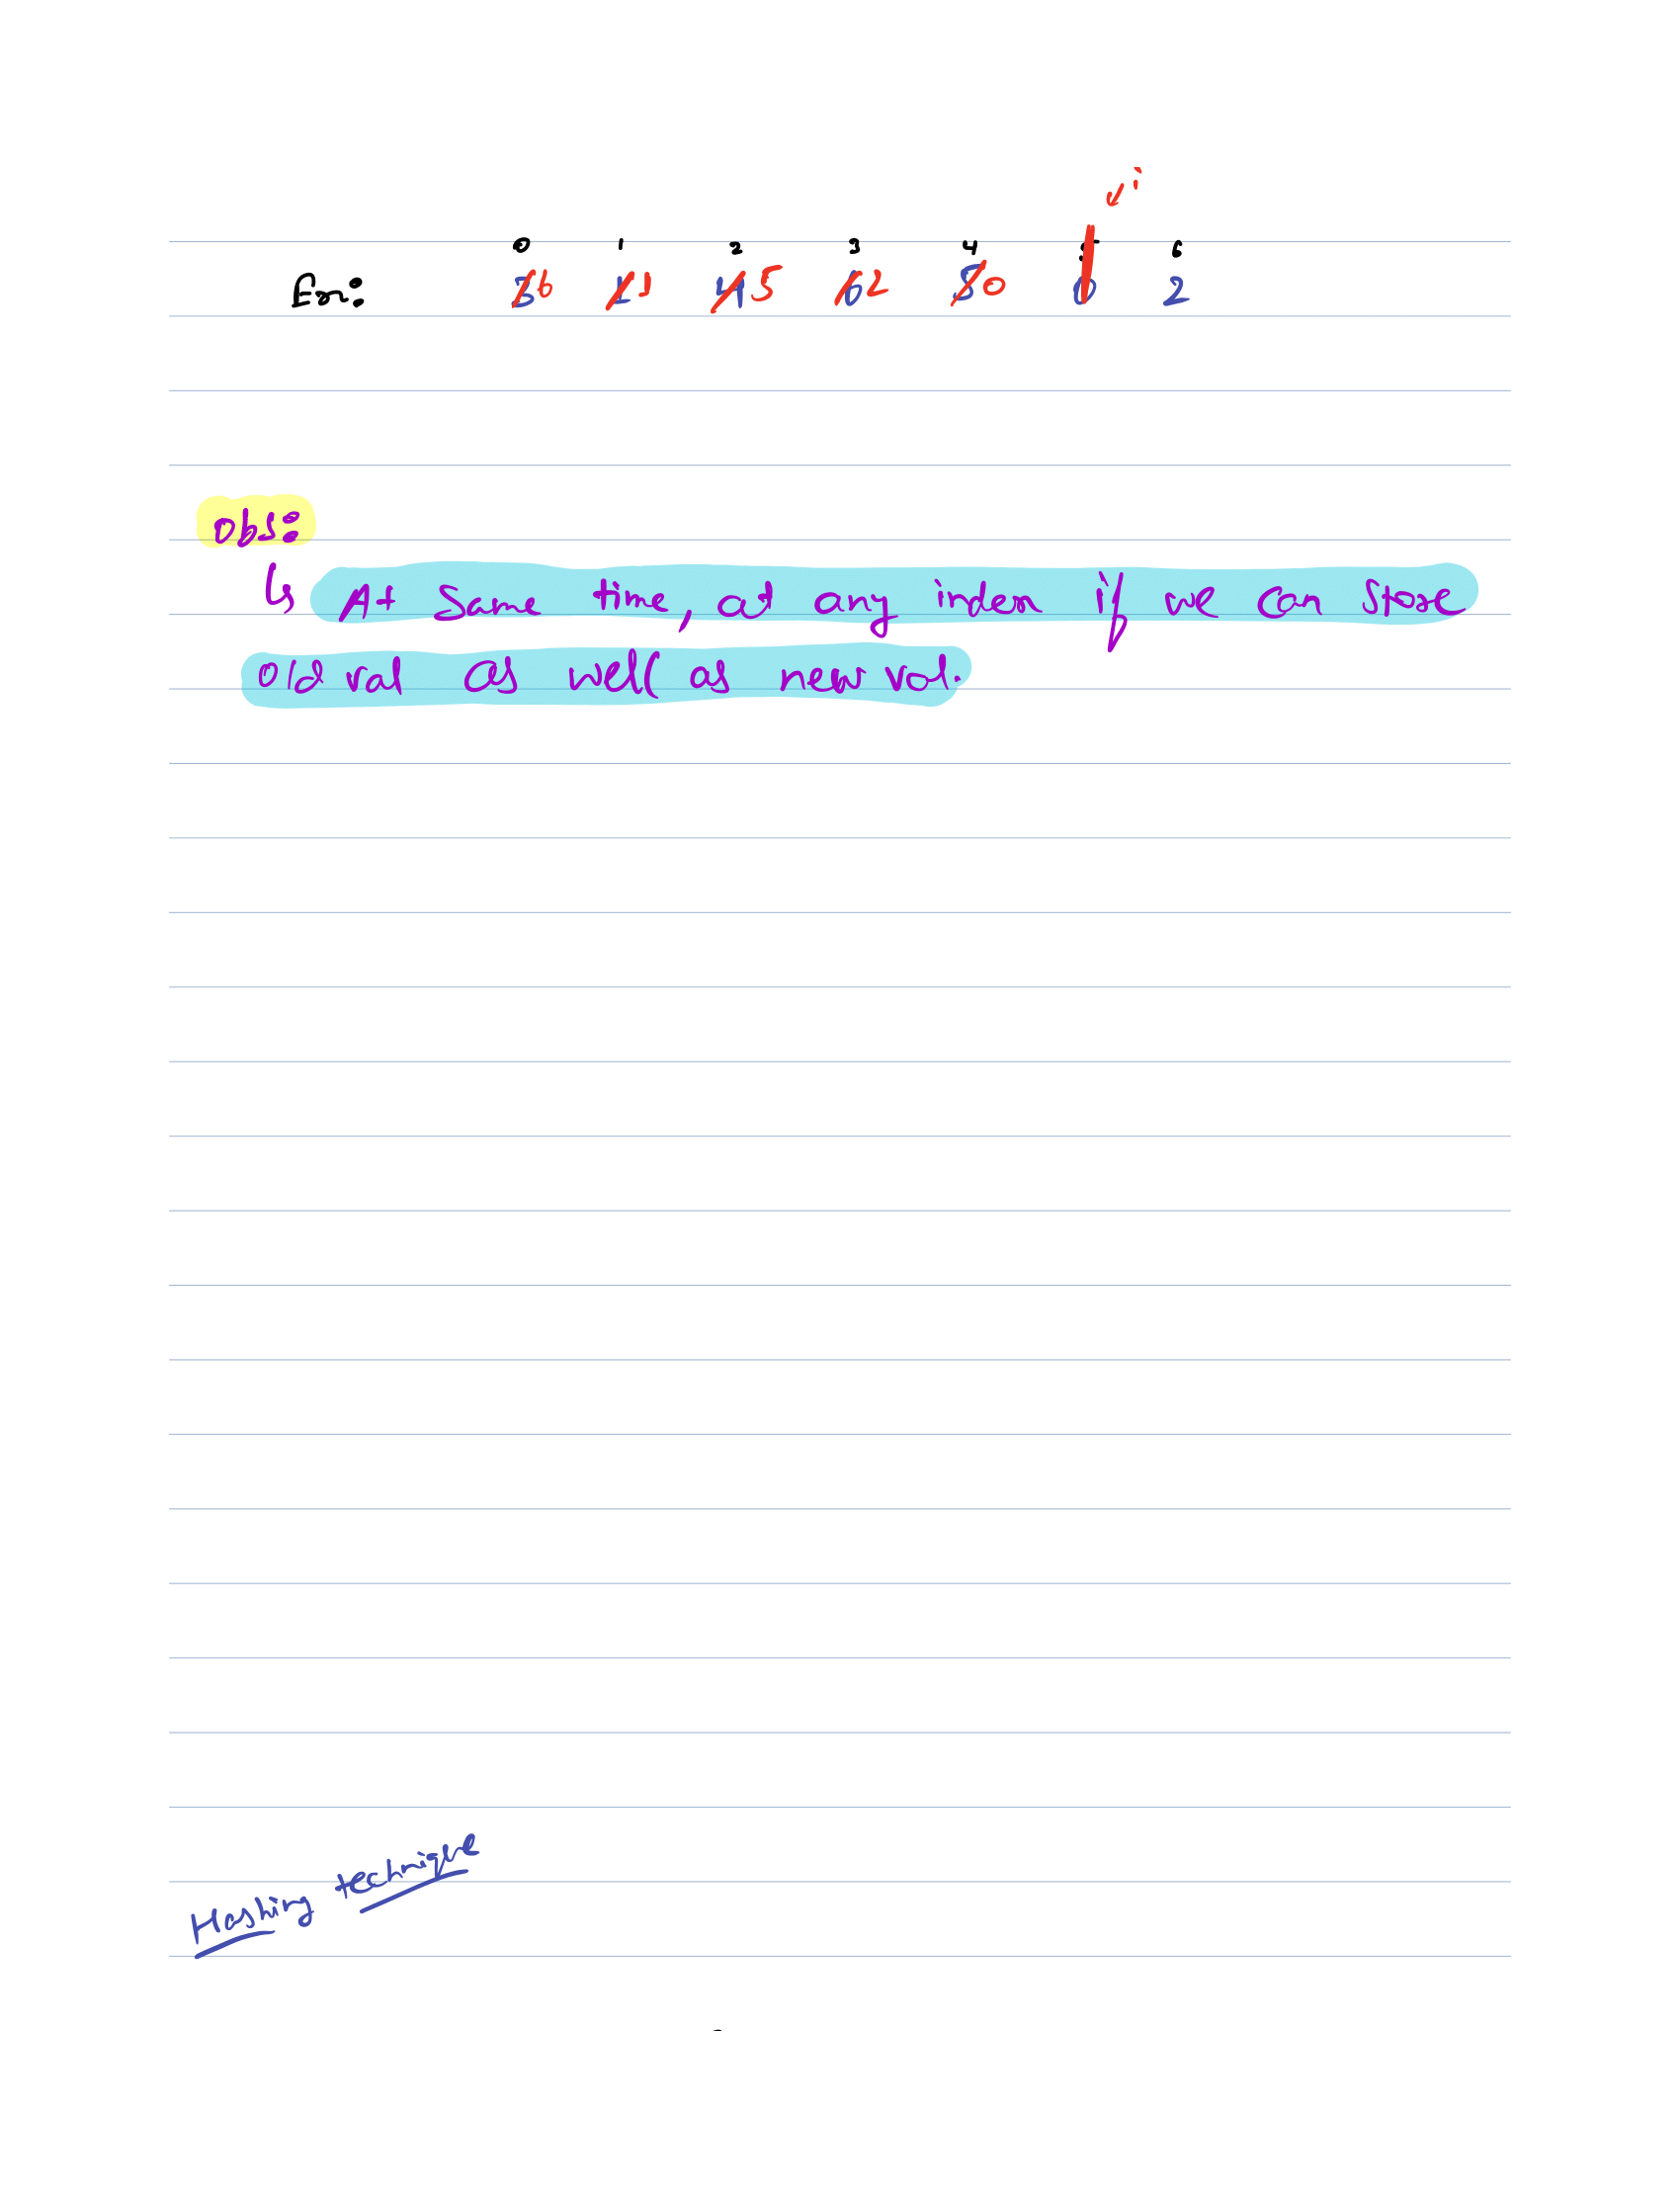 0 1 2 3 4 5 6
Ex: 3 6 1 1 4 5 6 2 5 0 0 2
i
Obs:
↳ At same time, at any index if we can store
old val as well as new val.
Hashing technique